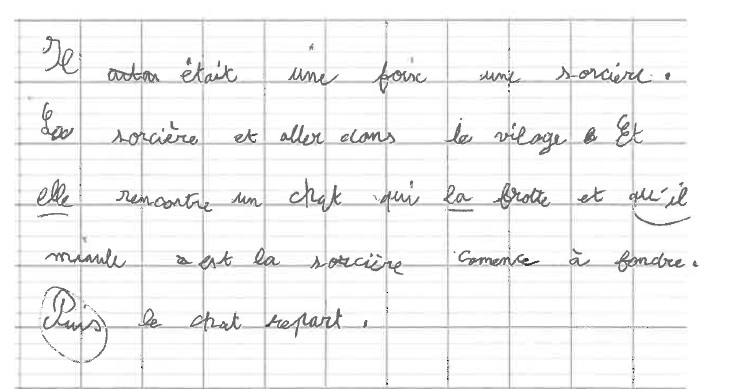 Il était une foix une sorcière.
La sorcière et aller dans le vilage Et
elle rencontre un chat qui la frotte et qu'il
miaule est la sorcière comence à fondre.
Puis le chat repart.